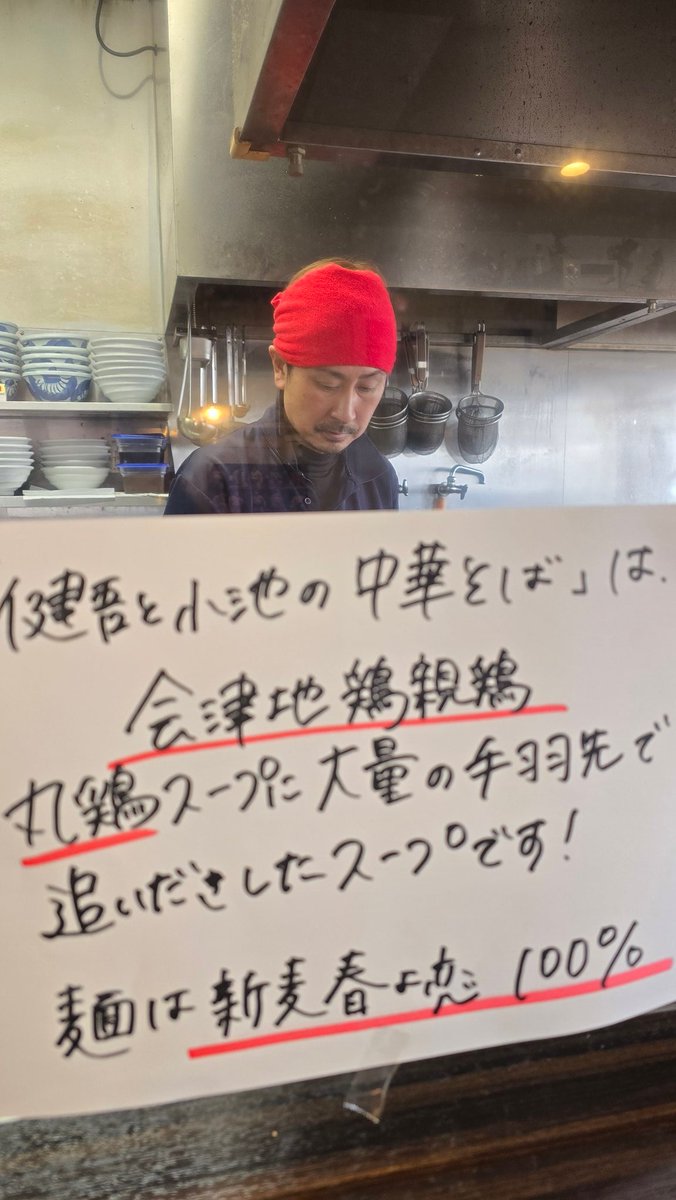 健吾と小池の中華そば」は、
会津地鶏親鶏
丸鶏スープに大量の手羽先で
追いだきしたスープです!
麺は新麦春よ恋 100%